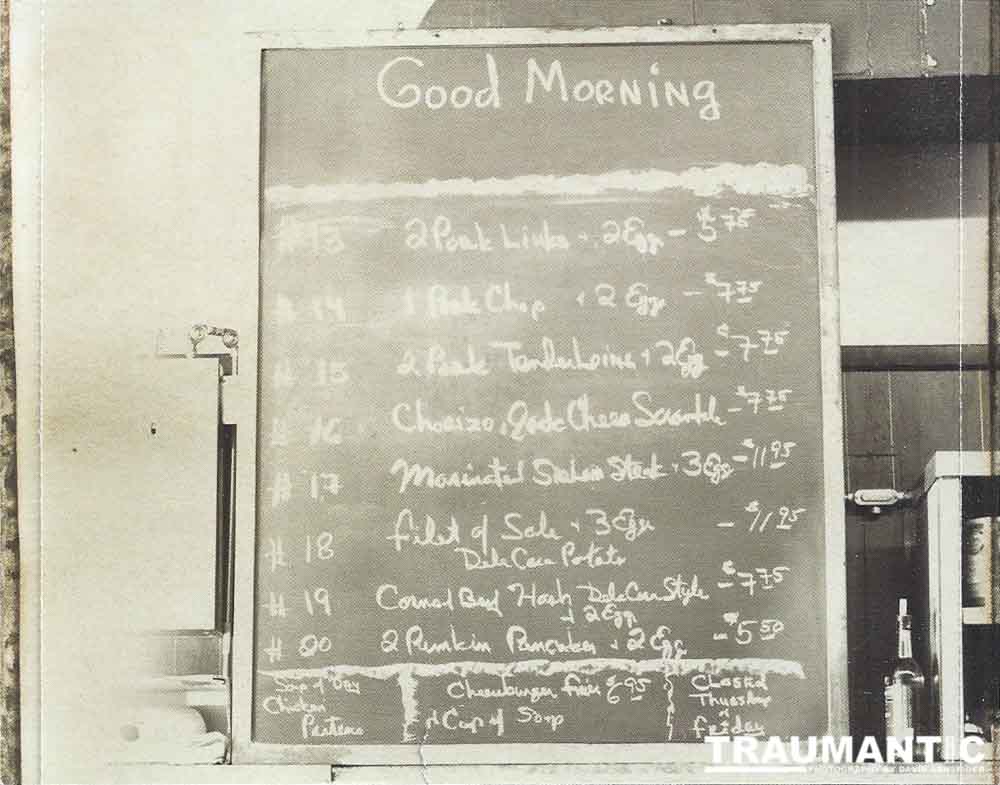 Good Morning
# 13 2 Pork Links + 2 Eggs - $5 75
# 14 1 Pork Chop + 2 Eggs - $7 75
# 15 2 Pork Tenderloins + 2 Egg - $7 75
# 16 Chorizo, Jack Cheese Scramble - $7 75
# 17 Marinated Steak + 3 Eggs - $11 95
# 18 Filet of Sole + 3 Eggs - $11 95
Dela Casa Potato
# 19 Corned Beef Hash Dela Casa Style - $7 75
+ 2 Egg
# 20 2 Pumkin Pancakes + 2 Egg - $5 50
Soup of Day
Chicken
Cheeseburger fries $6 95
+ Cup of Soup
Closted
Thuesday
+
friday
TRAUMANTIC
PHOTOGRAPHY BY DAVID